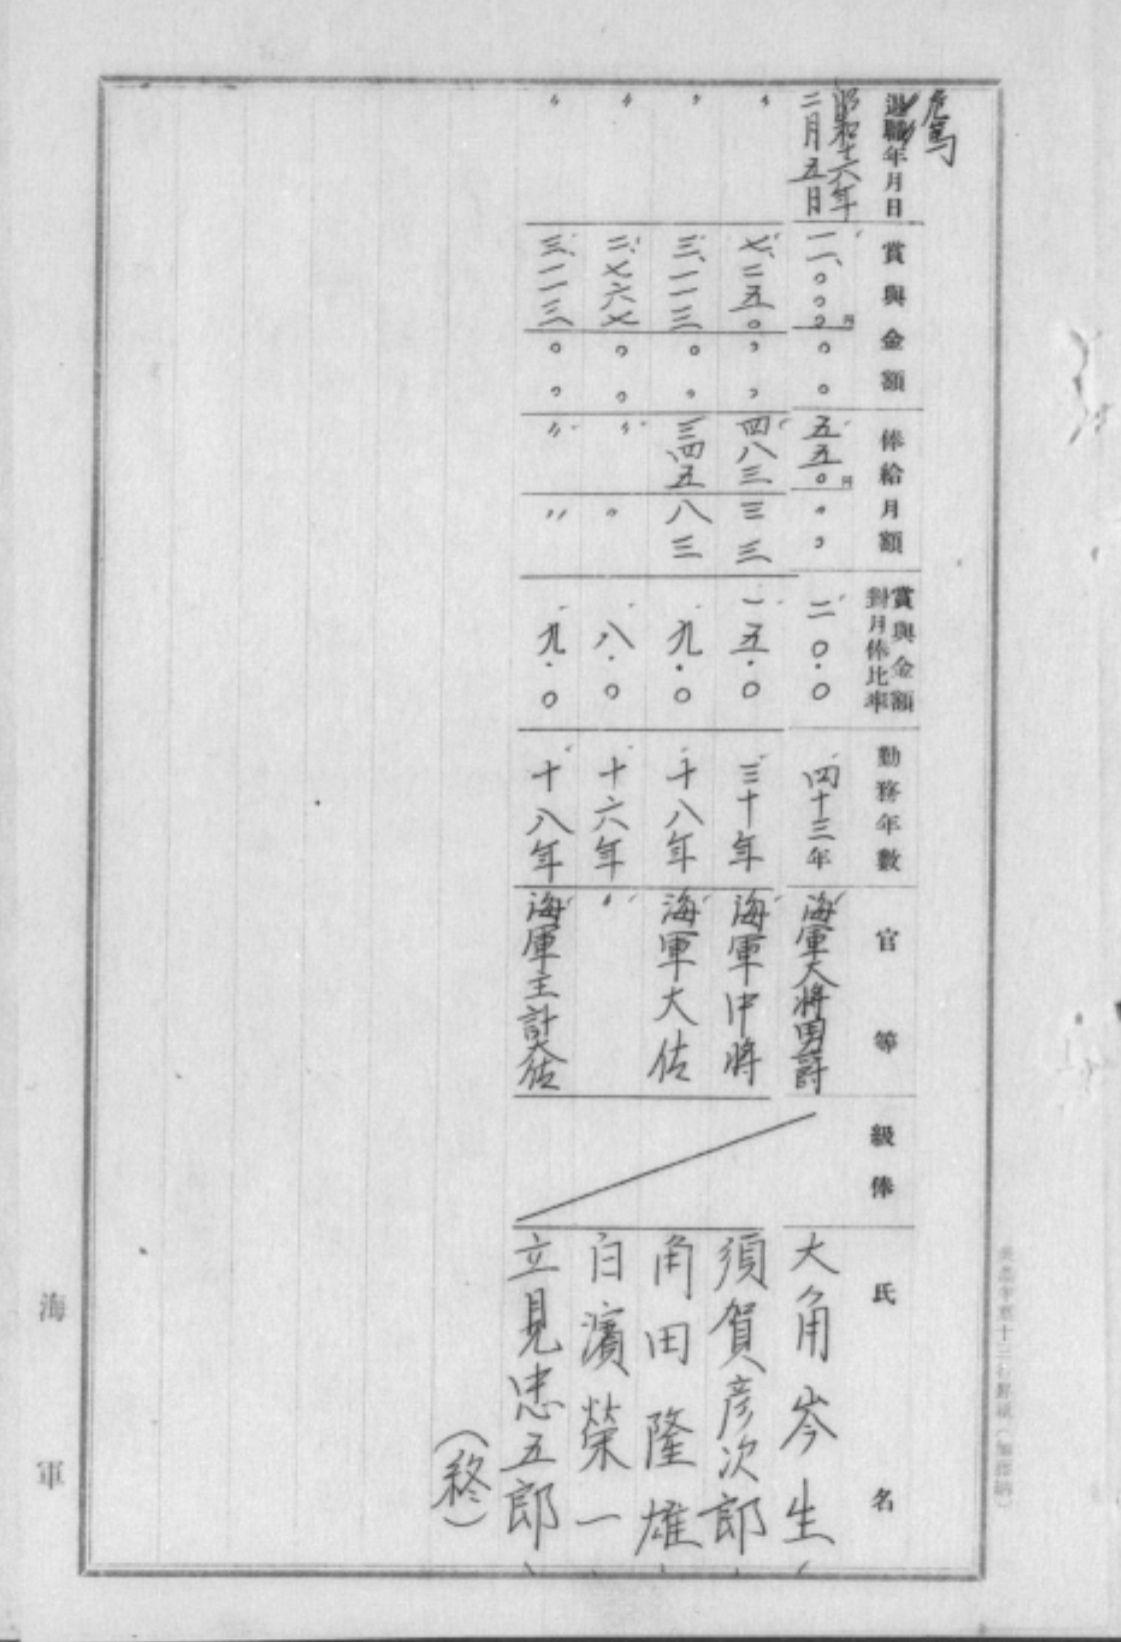 危篤
退職年月日 賞與金額 俸給月額 賞與金額對月俸比率 勤務年數 官等 級俸 氏名
昭和十六年二月五日 一一、〇〇〇円〇〇 五五〇円〇〇 二〇.〇 四十三年 海軍大将男爵 大角岑生
〃 七、二五〇〇〇 四八三三三 一五.〇 三十年 海軍中将 須賀彦次郎
〃 三、一一三〇〇 三四五八三 九.〇 十八年 海軍大佐 角田隆雄
〃 二、七六七〇〇 〃 〃 八.〇 十六年 〃 白濱榮一
〃 三、一一三〇〇 〃 〃 九.〇 十八年 海軍主計大佐 立見忠五郎
（終）
海軍